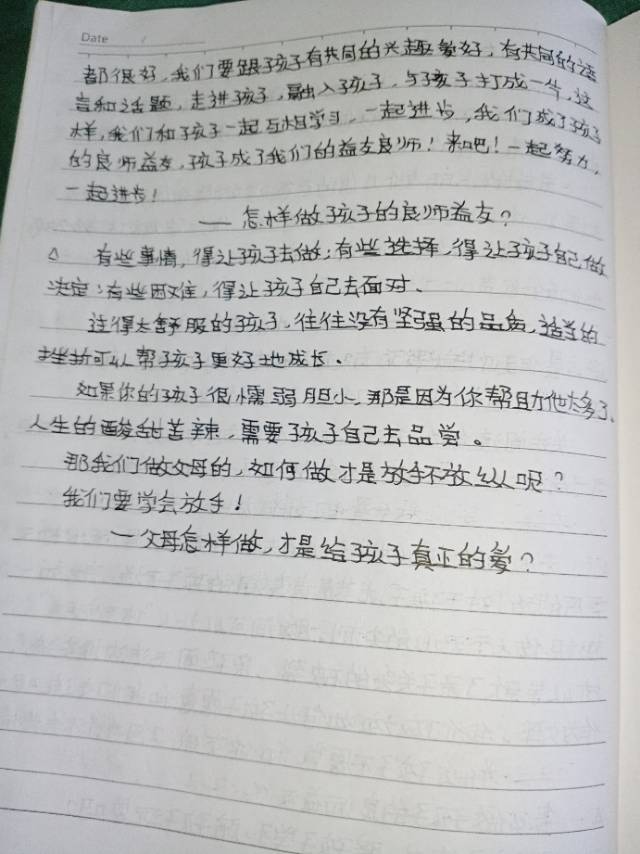 Date
都很好,我们要跟孩子有共同的兴趣爱好,有共同的语
言和话题,走进孩子,融入孩子,与孩子打成一片,这
样,我们和孩子一起互相学习,一起进步,我们成了孩子
的良师益友,孩子成了我们的益友良师!来吧!一起努力,
一起进步!
——怎样做孩子的良师益友?
△ 有些事情,得让孩子去做;有些选择,得让孩子自己做
决定;有些困难,得让孩子自己去面对。
过得太舒服的孩子,往往没有坚强的品质,适当的
挫折可以帮孩子更好地成长。
如果你的孩子很懦弱胆小,那是因为你帮助他太多了。
人生的酸甜苦辣,需要孩子自己去品尝。
那我们做父母的,如何做才是放手不放纵呢?
我们要学会放手!
—父母怎样做,才是给孩子真正的爱?